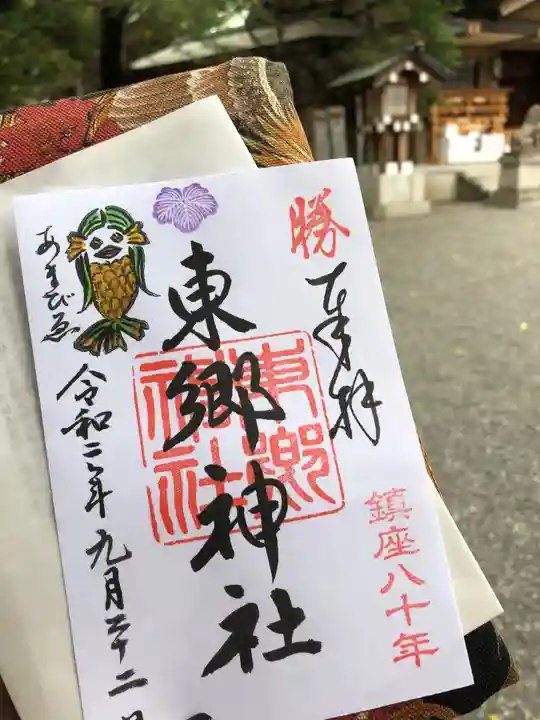 勝
奉拝
鎮座八十年
東郷神社
東郷
神社
あまびゑ
令和二年九月二十二日